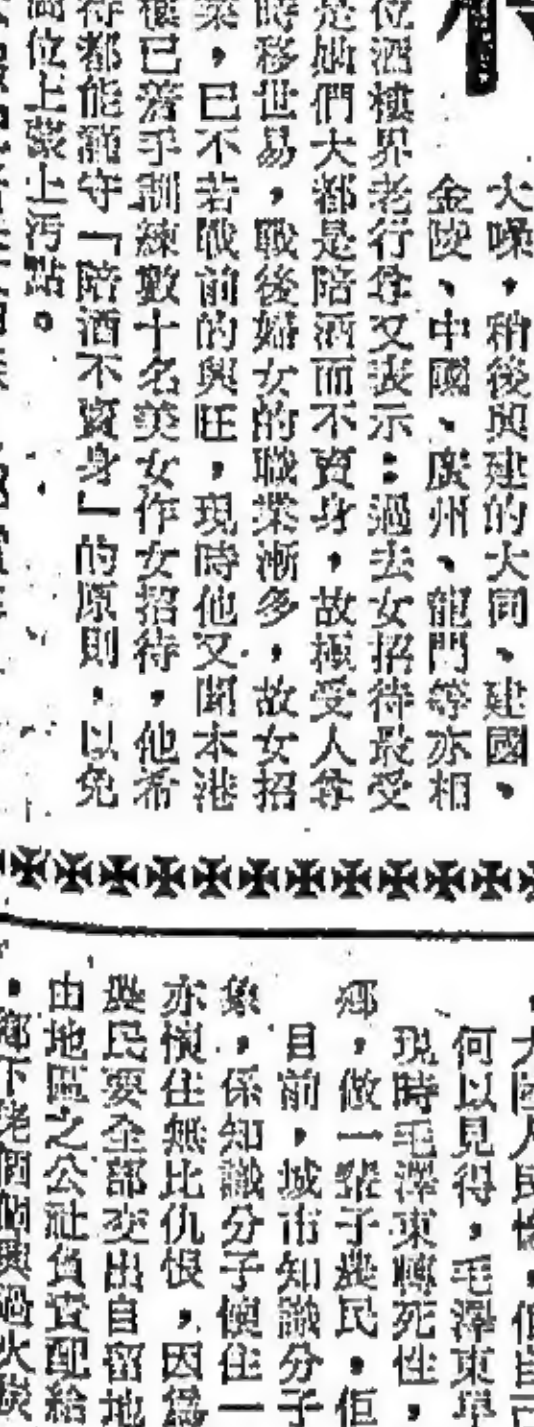 大噪，稍後興建的大同、建國、
金陵、中國、廣州、龍門等亦相
位酒樓界老行尊又表示：過去女招待最受
是她們大都是陪酒而不賣身，故極受人尊
時移世易，戰後婦女的職業漸多，故女招
業，已不若戰前的興旺，現時他又聞本港
樓已着手訓練數十名美女作女招待，他希
待都能謹守「陪酒不賣身」的原則，以免
高位上染上污點。
何以見得，毛澤東是
現時毛澤東轉死性，
鄉，做一輩子農民，佢
目前，城市知識分子
象，係知識分子便住一
亦懷住無比仇恨，因爲
與民要全部交出自留地
由地區之公社負責配給